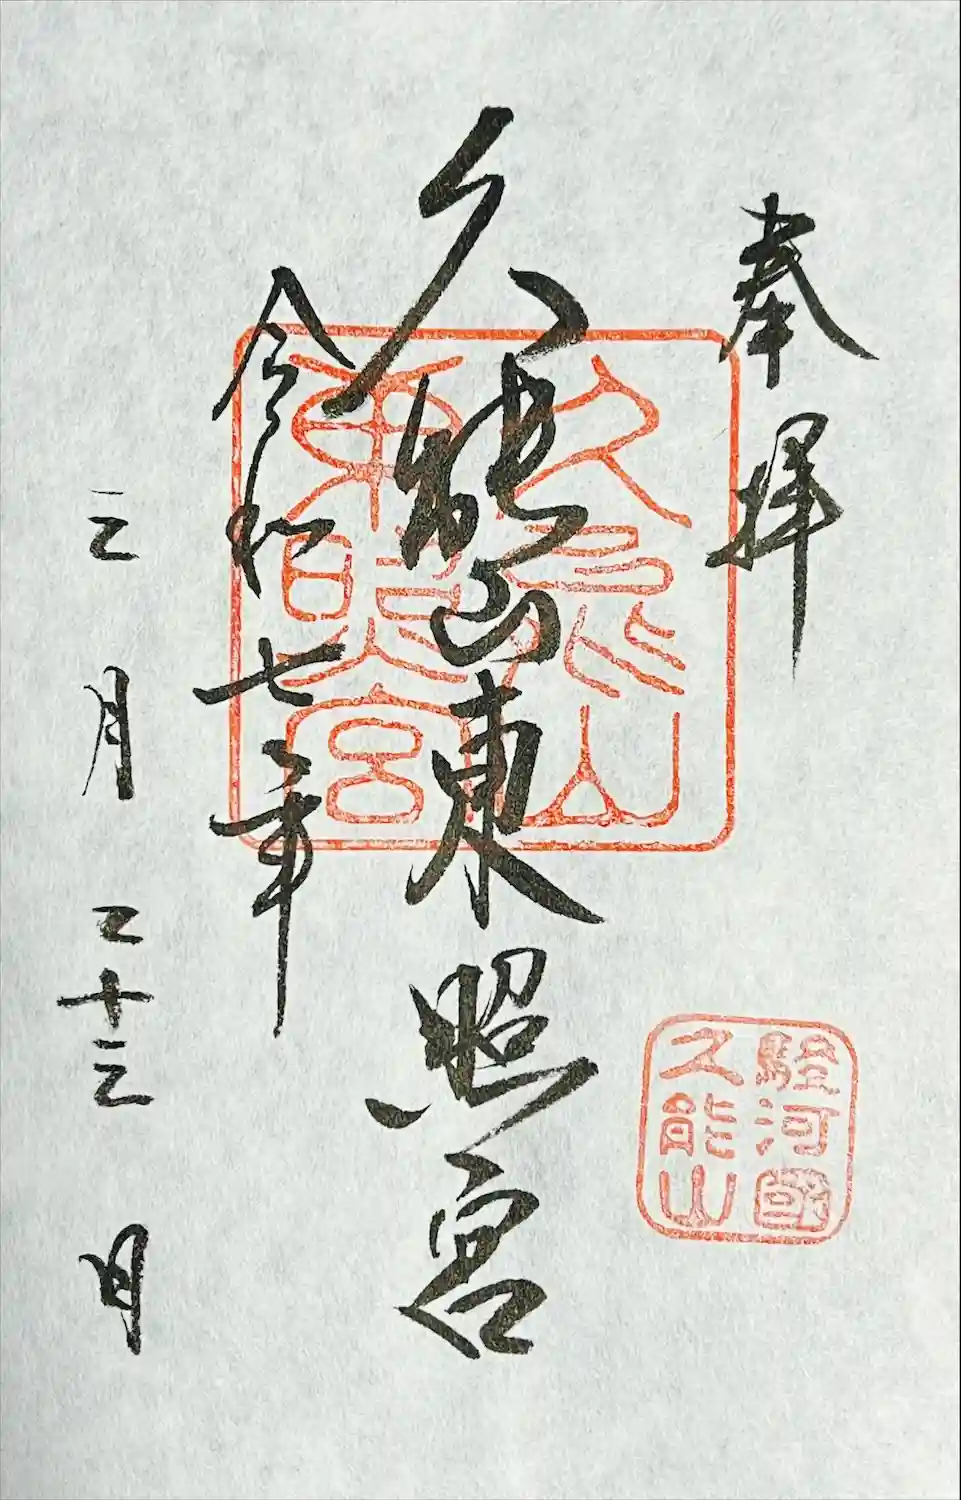 奉拝
久能山東照宮
令和七年
三月二十三日
久能山
東照宮
駿河國
久能山